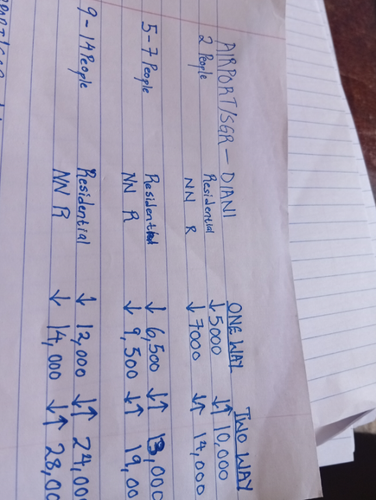 AIRPORT/SGR – DIANI ONE WAY TWO WAY
2 People Residential ↓ 5000 ↓↑ 10,000
NN R ↓ 7000 ↓↑ 14,000
5-7 People Residential ↓ 6,500 ↓↑ 13,000
NN R ↓ 9,500 ↓↑ 19,00
9-14 People Residential ↓ 12,000 ↓↑ 24,00
NN R ↓ 14,000 ↓↑ 28,00